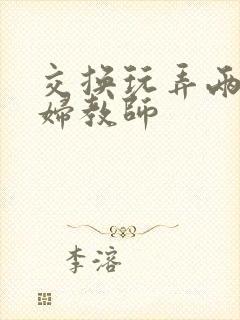 交换玩弄两
婦教師
李溶